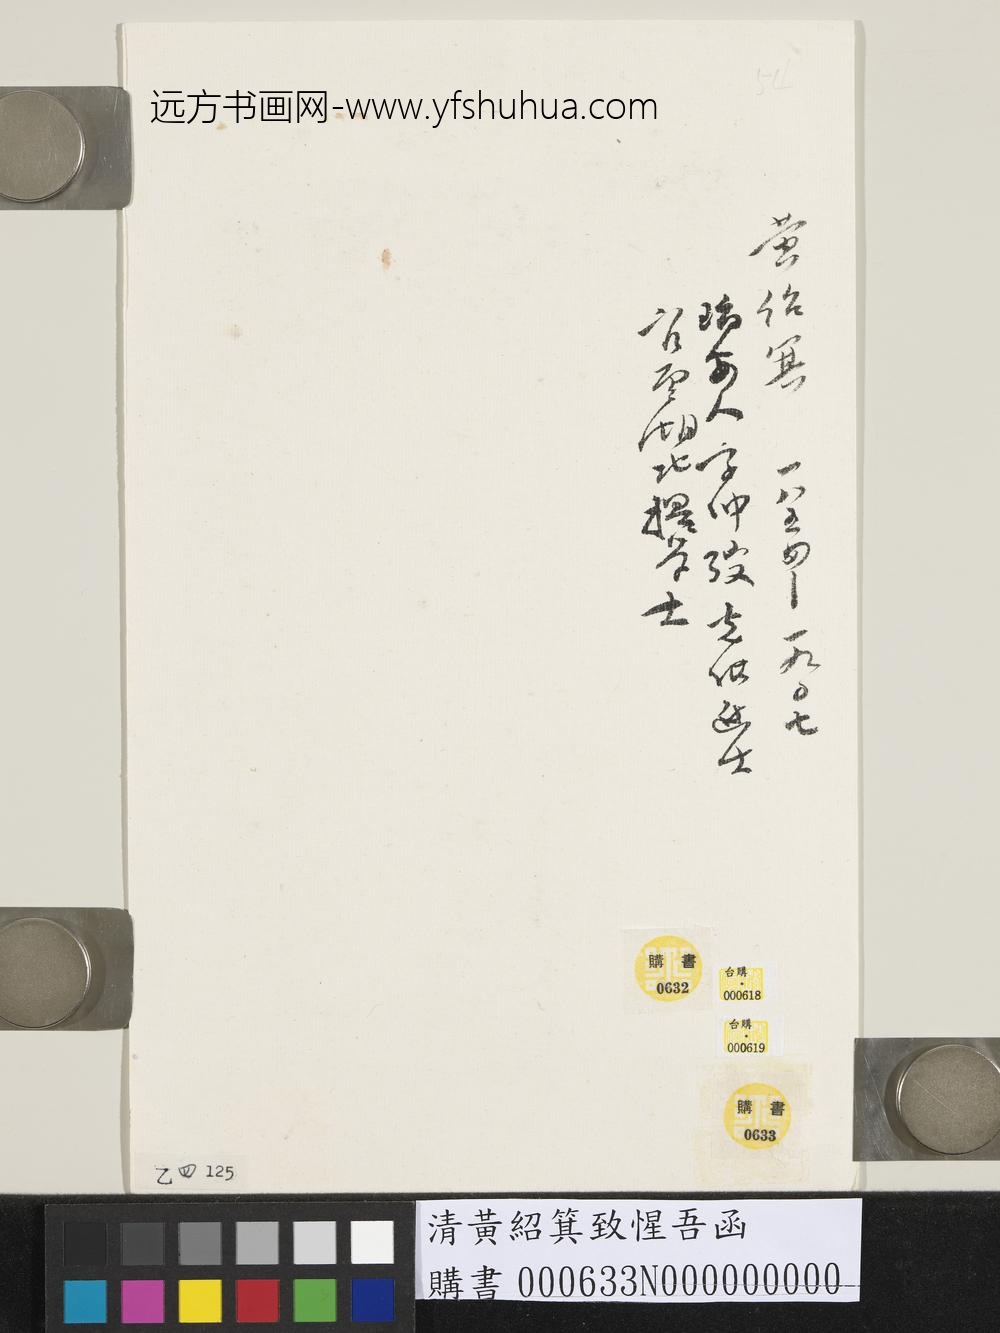 远方书画网-www.yfshuhua.com
54
黄绍箕 一八五四—一九〇七
瑞安人字仲弢光绪进士
官至湖北提学士
購書
0632
台購
000618
台購
000619
購書
0633
乙四125
清黃紹箕致惺吾函
購書 000633N000000000